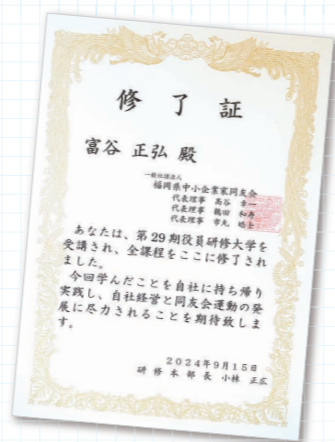 修了証
富谷 正弘 殿
一般社団法人
福岡県中小企業家同友会
代表理事 髙谷 幸一
代表理事 鶴田 和寿
代表理事 市丸 皓士
あなたは、第29期役員研修大学を
受講され、全課程をここに修了され
ました。
今回学んだことを自社に持ち帰り
実践し、自社経営と同友会運動の発
展に尽力されることを期待致しま
す。
2024年9月15日
研修本部長 小林 正広